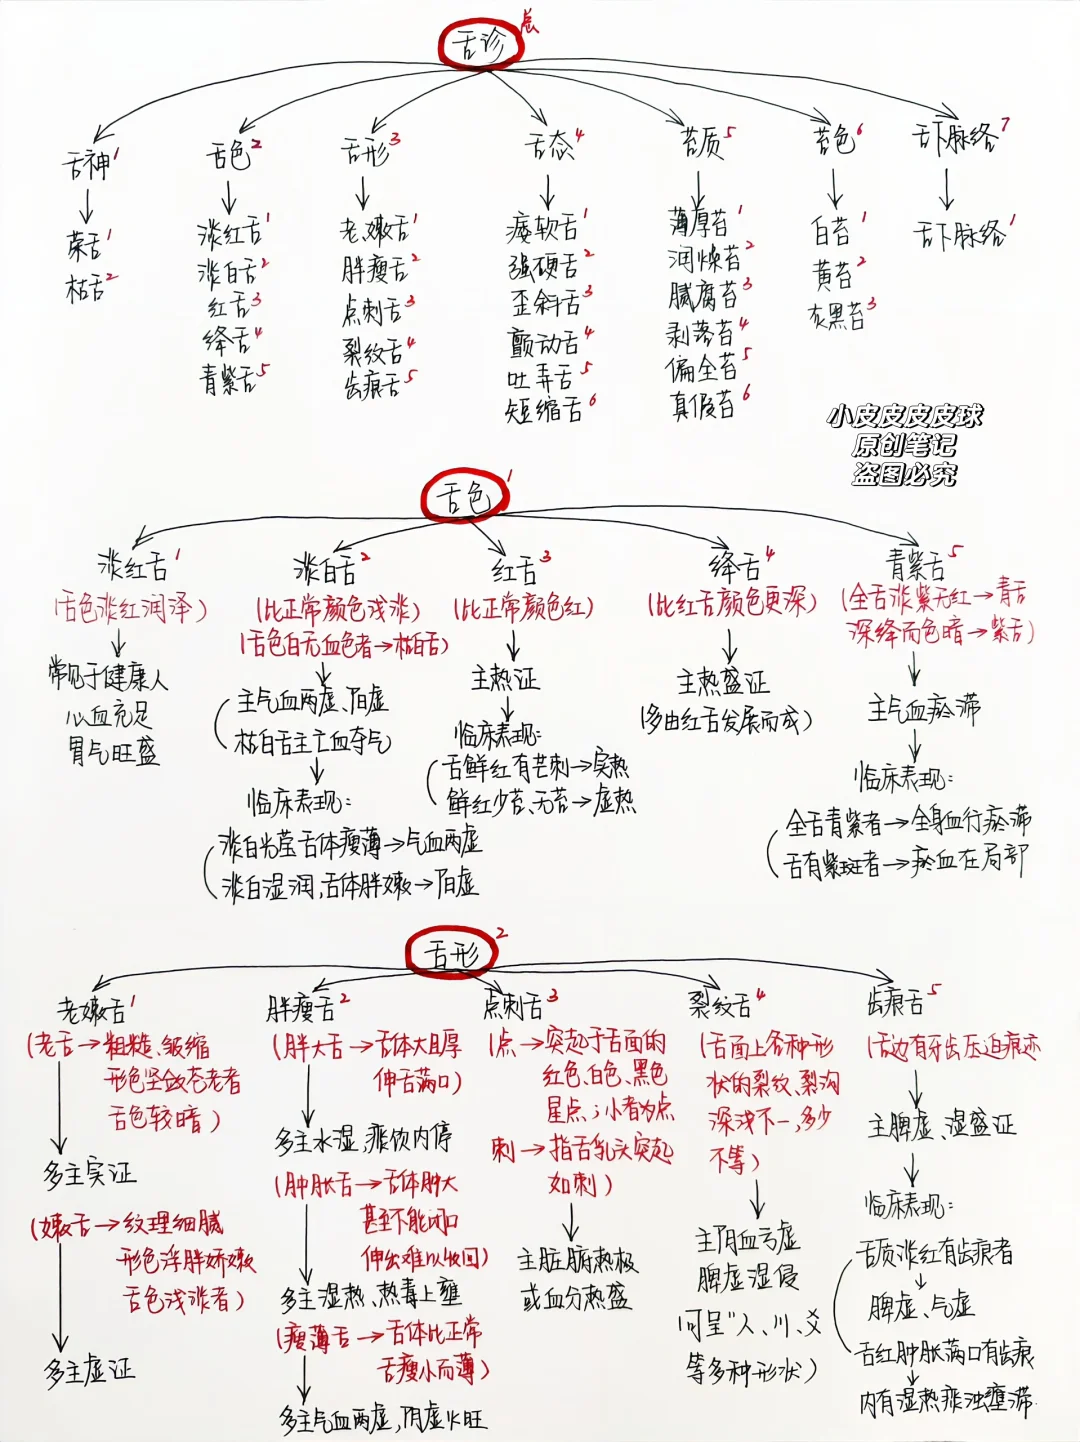 舌诊 总
舌神1 舌色2 舌形3 舌态4 苔质5 苔色6 舌下脉络7
荣舌1
枯舌2
淡红舌1
淡白舌2
红舌3
绛舌4
青紫舌5
老嫩舌1
胖瘦舌2
点刺舌3
裂纹舌4
齿痕舌5
痿软舌1
强硬舌2
歪斜舌3
颤动舌4
吐弄舌5
短缩舌6
薄厚苔1
润燥苔2
腻腐苔3
剥落苔4
偏全苔5
真假苔6
白苔1
黄苔2
灰黑苔3
舌下脉络1
小皮皮皮皮球
原创笔记
盗图必究
舌色1
淡红舌1
(舌色淡红润泽)
常见于健康人
心血充足
胃气旺盛
淡白舌2
(比正常颜色浅淡)
(舌色白无血色者→枯白舌)
主气血两虚、阳虚
枯白舌主亡血夺气
临床表现:
淡白光莹舌体瘦薄→气血两虚
淡白湿润,舌体胖嫩→阳虚
红舌3
(比正常颜色红)
主热证
临床表现:
舌鲜红有芒刺→实热
鲜红少苔、无苔→虚热
绛舌4
(比红舌颜色更深)
主热盛证
(多由红舌发展而成)
青紫舌5
(全舌淡紫无红→青舌
深绛而色暗→紫舌)
主气血瘀滞
临床表现:
全舌青紫者→全身血行瘀滞
舌有紫斑者→瘀血在局部
舌形2
老嫩舌1
(老舌→粗糙、皱缩
形色坚敛苍老者
舌色较暗)
多主实证
(嫩舌→纹理细腻
形色浮胖娇嫩
舌色浅淡者)
多主虚证
胖瘦舌2
(胖大舌→舌体大且厚
伸舌满口)
多主水湿,痰饮内停
(肿胀舌→舌体肿大
甚至不能闭口
伸出难以收回)
多主湿热、热毒上壅
(瘦薄舌→舌体比正常
舌瘦小而薄)
多主气血两虚,阴虚火旺
点刺舌3
(点→突起于舌面的
红色、白色、黑色
星点;小者为点
刺→指舌乳头突起
如刺)
主脏腑热极
或血分热盛
裂纹舌4
(舌面上各种形
状的裂纹、裂沟
深浅不一,多少
不等)
主阴血亏虚
脾虚湿侵
可呈"人、川、爻
等多种形状)
齿痕舌5
(舌边有牙齿压迫痕迹
主脾虚、湿盛证
临床表现:
舌质淡红有齿痕者
脾虚、气虚
舌红肿胀满口有齿痕
内有湿热痰浊壅滞